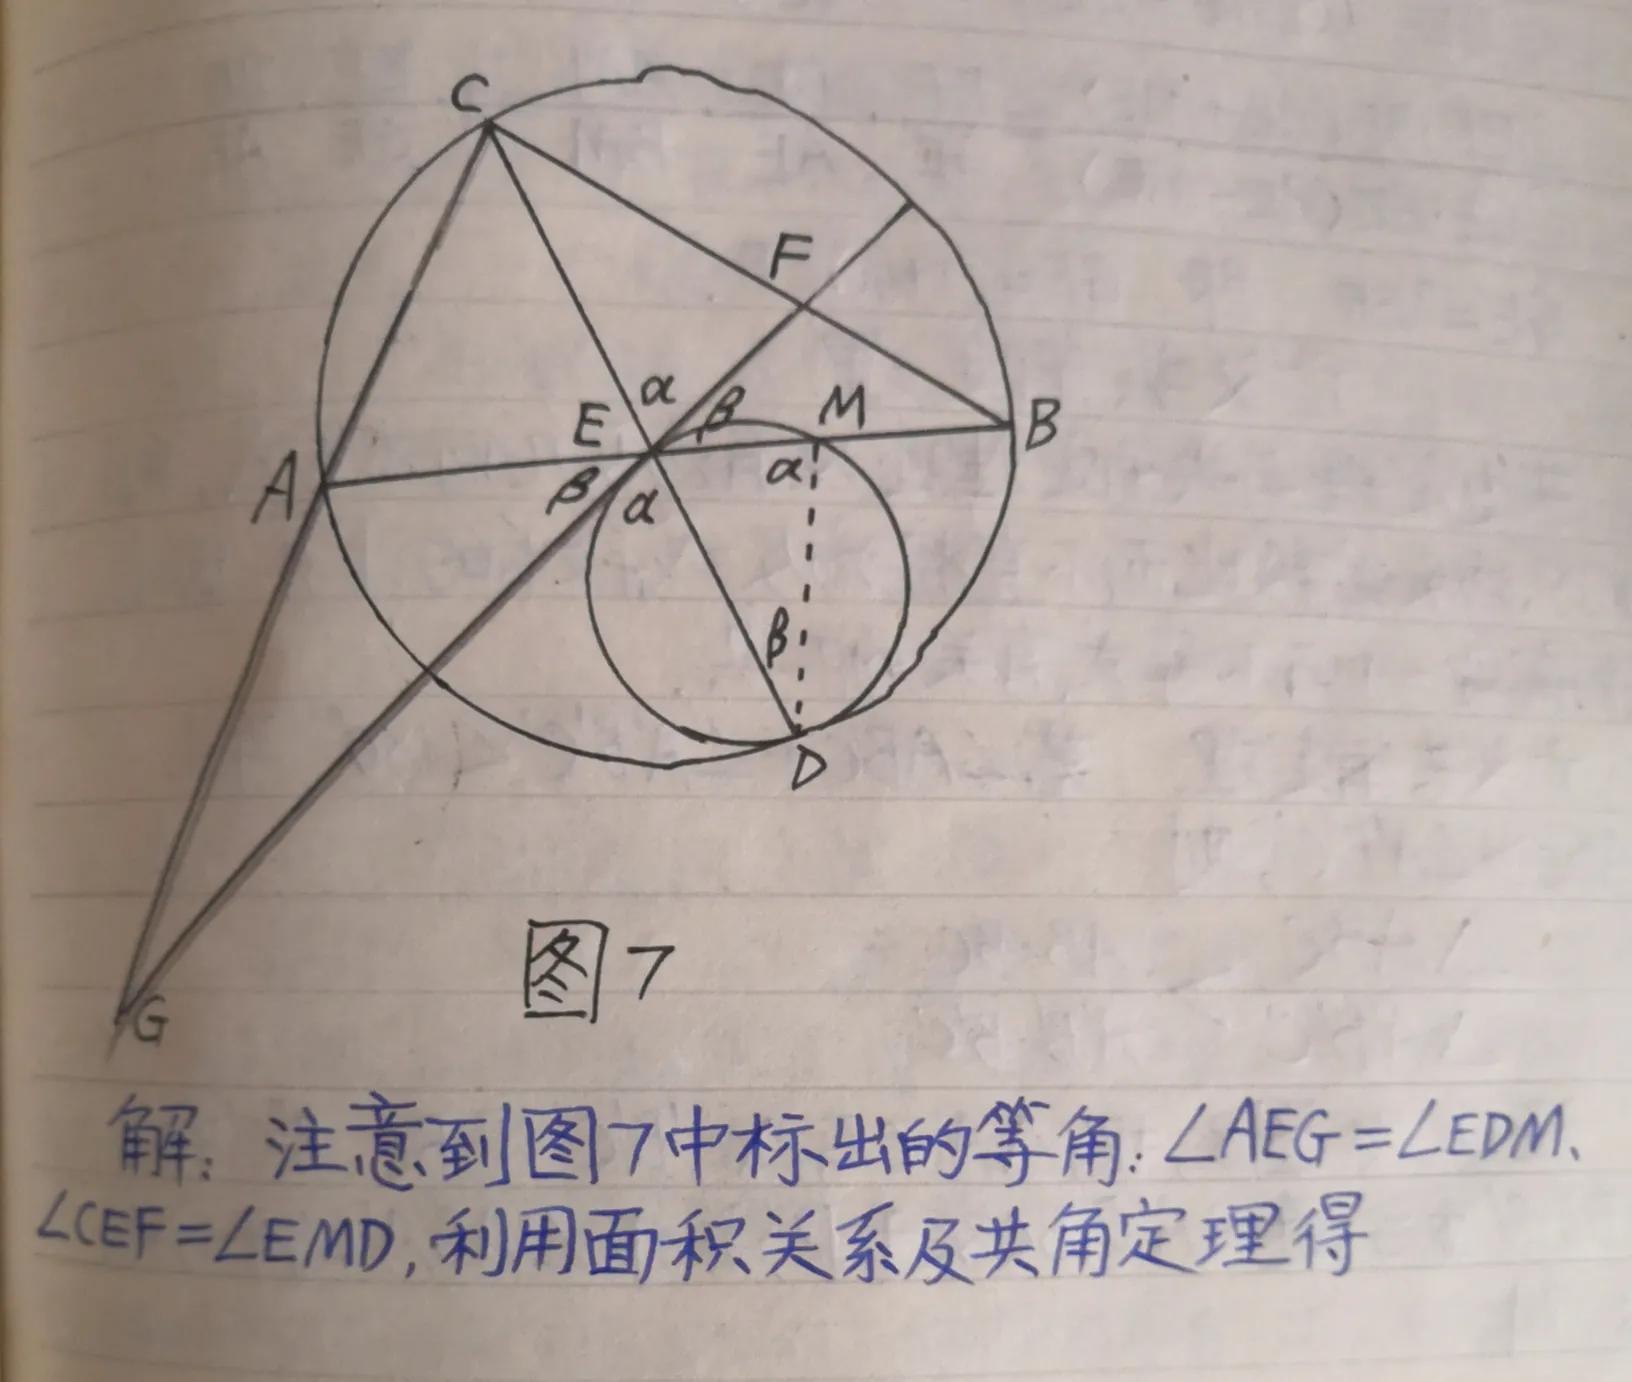 C
F
α
E
β
M
B
A
β
α
α
β
D
G
图7
解:注意到图7中标出的等角:∠AEG=∠EDM、
∠CEF=∠EMD,利用面积关系及共角定理得